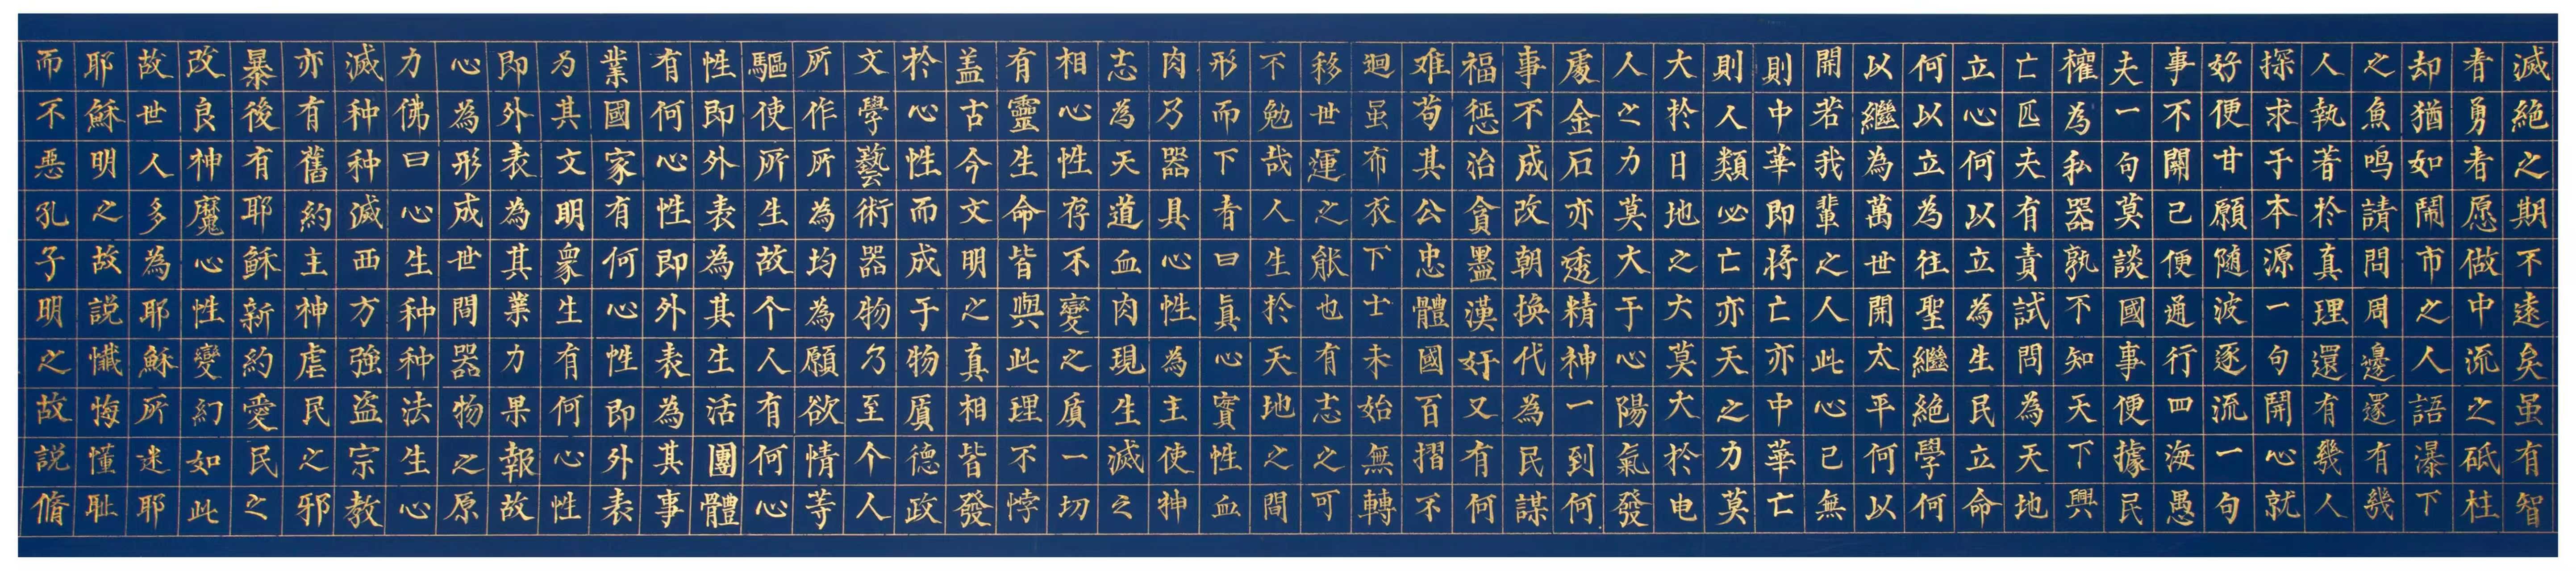 滅絕之期不遠矣虽有智
者勇者愿做中流之砥柱
却猶如鬧市之人語瀑下
之魚鸣請問周邊還有幾
人執著於真理還有幾人
探求于本源一句開心就
好便甘願隨波逐流一句
事不關己便通行四海愚
夫一句莫談國事便據民
權為私器孰不知天下興
亡匹夫有責試問為天地
立心何以立為生民立命
何以立為往聖繼絕學何
以繼為萬世開太平何以
開若我輩之人此心已無
則中華即将亡亦中華亡
則人類必亡亦天之力莫
大於日地之大莫大於电
人之力莫大于心陽氣發
處金石亦透精神一到何
事不成改朝換代為民謀
福懲治貪墨漢奸又有何
难苟其公忠體國百摺不
迴虽布衣下士未始無轉
移世運之能也有志之可
不勉哉人生於天地之間
形而下者曰眞心實性血
肉乃器具心性為主使神
志為天道血肉現生滅之
相心性存不變之質一切
有靈生命皆與此理不悖
盖古今文明之真相皆發
於心性而成于物質德政
文學藝術器物乃至个人
所作所為均為願欲情等
驅使所生故个人有何心
性即外表為其生活團體
有何心性即外表為其事
業國家有何心性即外表
为其文明衆生有何心性
即外表為其業力果報故
心為形成世間器物之原
力佛曰心生种种法生心
滅种种滅西方強盗宗教
亦有舊約主神虐民之邪
暴後有耶穌新約愛民之
改良神魔心性變幻如此
故世人多為耶穌所迷耶
耶穌明之故説懺悔懂耻
而不惡孔子明之故説脩